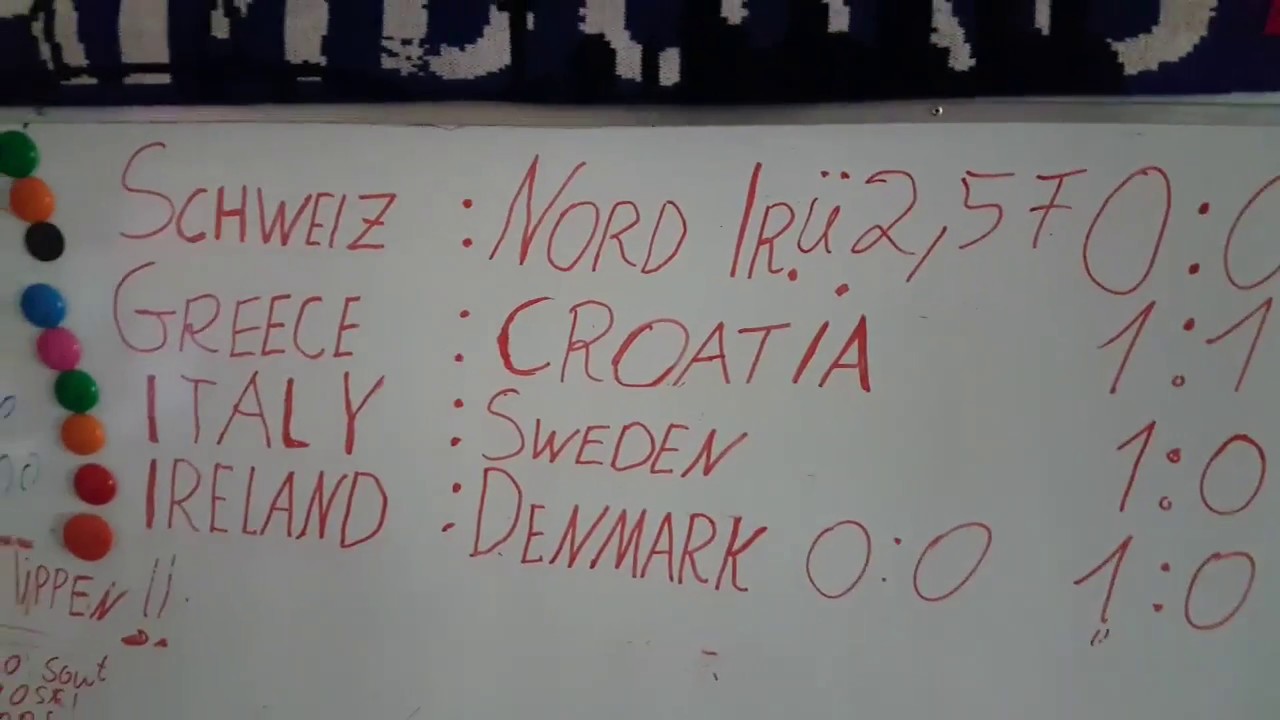 SCHWEIZ : NORD IR. ü2,57 0:0
GREECE : CROATIA 1:1
ITALY : SWEDEN 1:0
IRELAND : DENMARK 0:0 1:0
TIPPEN !!